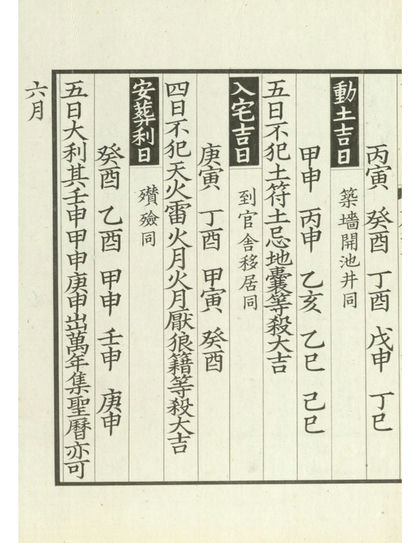 丙寅 癸酉 丁酉 戊申 丁巳
動土吉日 築墻開池井同
甲申 丙申 乙亥 乙巳 己巳
五日不犯土符土忌地囊等殺大吉
入宅吉日 到官舍移居同
庚寅 丁酉 甲寅 癸酉
四日不犯天火雷火月火月厭狼籍等殺大吉
安葬利日 殯殮同
癸酉 乙酉 甲申 壬申 庚申
五日大利其壬申甲申庚申出萬年集聖曆亦可
六月